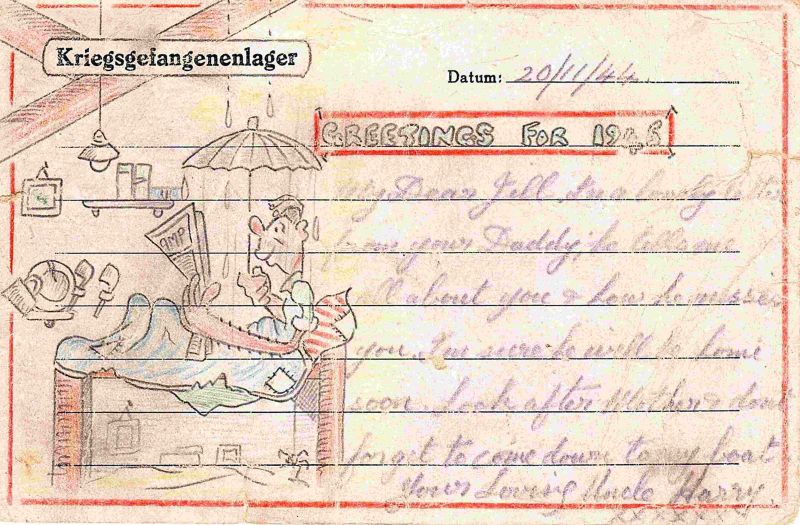 Kriegsgefangenenlager
Datum: 20/11/44.
GREETINGS FOR 1945
My Dear Jill. In a lovely letter
from your Daddy, he tells me
all about you & how he misses
you. I'm sure he will be home
soon. Look after Mother & dont
forget to come down to my boat
Your Loving Uncle Harry
xxxxx